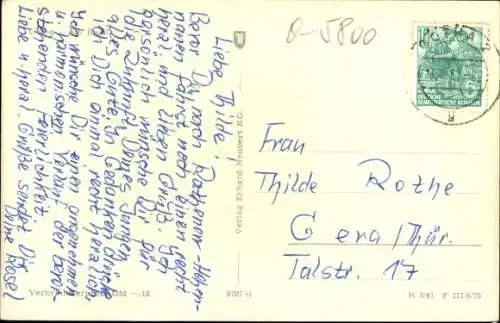 Liebe Thilde!
Bevor Du nach Rathenow-Hohen-
nauen fährst noch einen recht
herzl. und lieben Gruß. Ich
persönlich wünsche Dir für
die Zukunft Deines Jungen
alles Gute, in Gedanken drücke
ich Dich einmal recht herzlich.
Ich wünsche Dir einen angenehmen
u. harmonischen Verlauf der bevor-
stehenden Feierlichkeit.
Liebe u. herzl. Grüße sendet Dir
Deine Rosel
Verlag Erhard Neubert KG.
Verbraucherpreis DM —.12
9707 n
0-5800
GOTHA 2
DEUTSCHE
DEMOKRATISCHE REPUBLIK
Frau
Thilde Rothe
Gera/Thür.
Talstr. 17